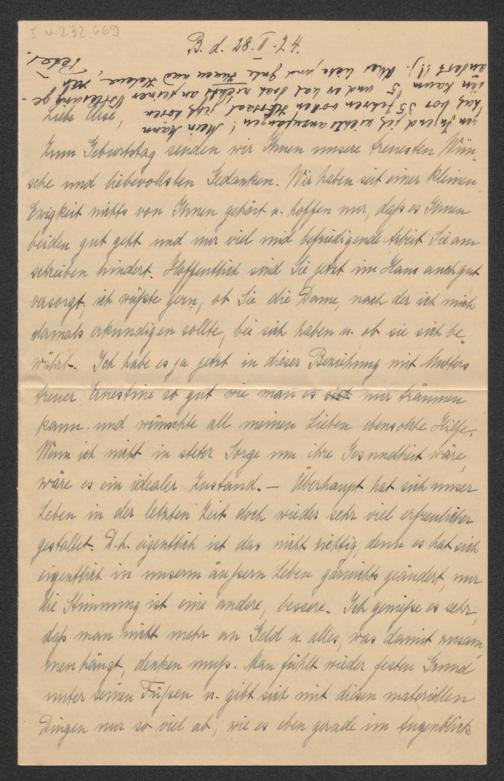 I.N. 232.669
B. d. 28. II. 24.
Liebe Elise,
Zum Geburtstag senden wir Ihnen unsere treuesten Wün-
sche und liebevollsten Gedanken. Wir haben seit einer kleinen
Ewigkeit nichts von Ihnen gehört u. hoffen nur, daß es Ihnen
beiden gut geht und nur viel und befriedigende Arbeit Sie am
schreiben hindert. Hoffentlich sind Sie jetzt im Haus auch gut
versorgt, ich wüßte gern, ob Sie die Dame, nach der ich mich
damals erkundigen sollte, bei sich haben u. ob sie sich be-
währt. Ich habe es ja jetzt in dieser Beziehung mit Mutters
treuer Ernestine so gut wie man es nur träumen
kann und wünschte all meinen Lieben ebensolche Hilfe.
Wenn ich nicht in steter Sorge um ihre Gesundheit wäre,
wäre es ein idealer Zustand. — Überhaupt hat sich unser
Leben in der letzten Zeit doch wieder sehr viel erfreulicher
gestaltet. D.h. eigentlich ist das nicht richtig, denn es hat sich
eigentlich in unserm äußern Leben garnichts geändert, nur
die Stimmung ist eine andere, bessere. Ich genieße es sehr,
daß man nicht mehr an Geld u. alles, was damit zusam-
menhängt, denken muß. Man fühlt wieder festen Grund
unter seinen Füßen u. gibt sich mit diesen materiellen
Dingen nur so viel ab, wie es eben gerade im Augenblick